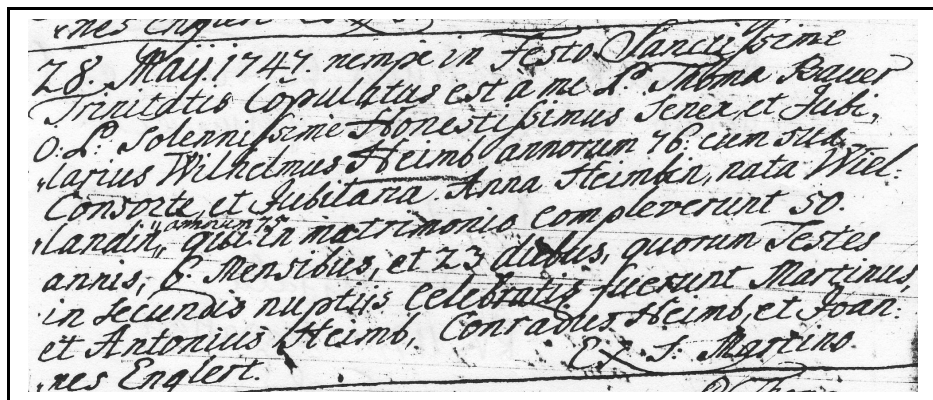 ,nes Englert
28. Maij. 1747. nempe in Festo Sanctissime
Trinitatis Copulatus est à me P. Thoma Brauer
O: P. Solennissime Honestissimus Senex, et Jubi,
,larius Wilhelmus Heimb annorum 76. cum sua
Consorte, et Jubilaria Anna Heimbin, nata Wiel:
annorum 75
,landin,, qui in matrimonio compleverunt 50.
annis, 6. Mensibus, et 23 diebus, quorum Testes
in secundis nuptijs celebratis fuerunt Martinus,
et Antonius Heimb, Conradus Heimb, et Joan:
,nes Englert. Ex S. Martino.